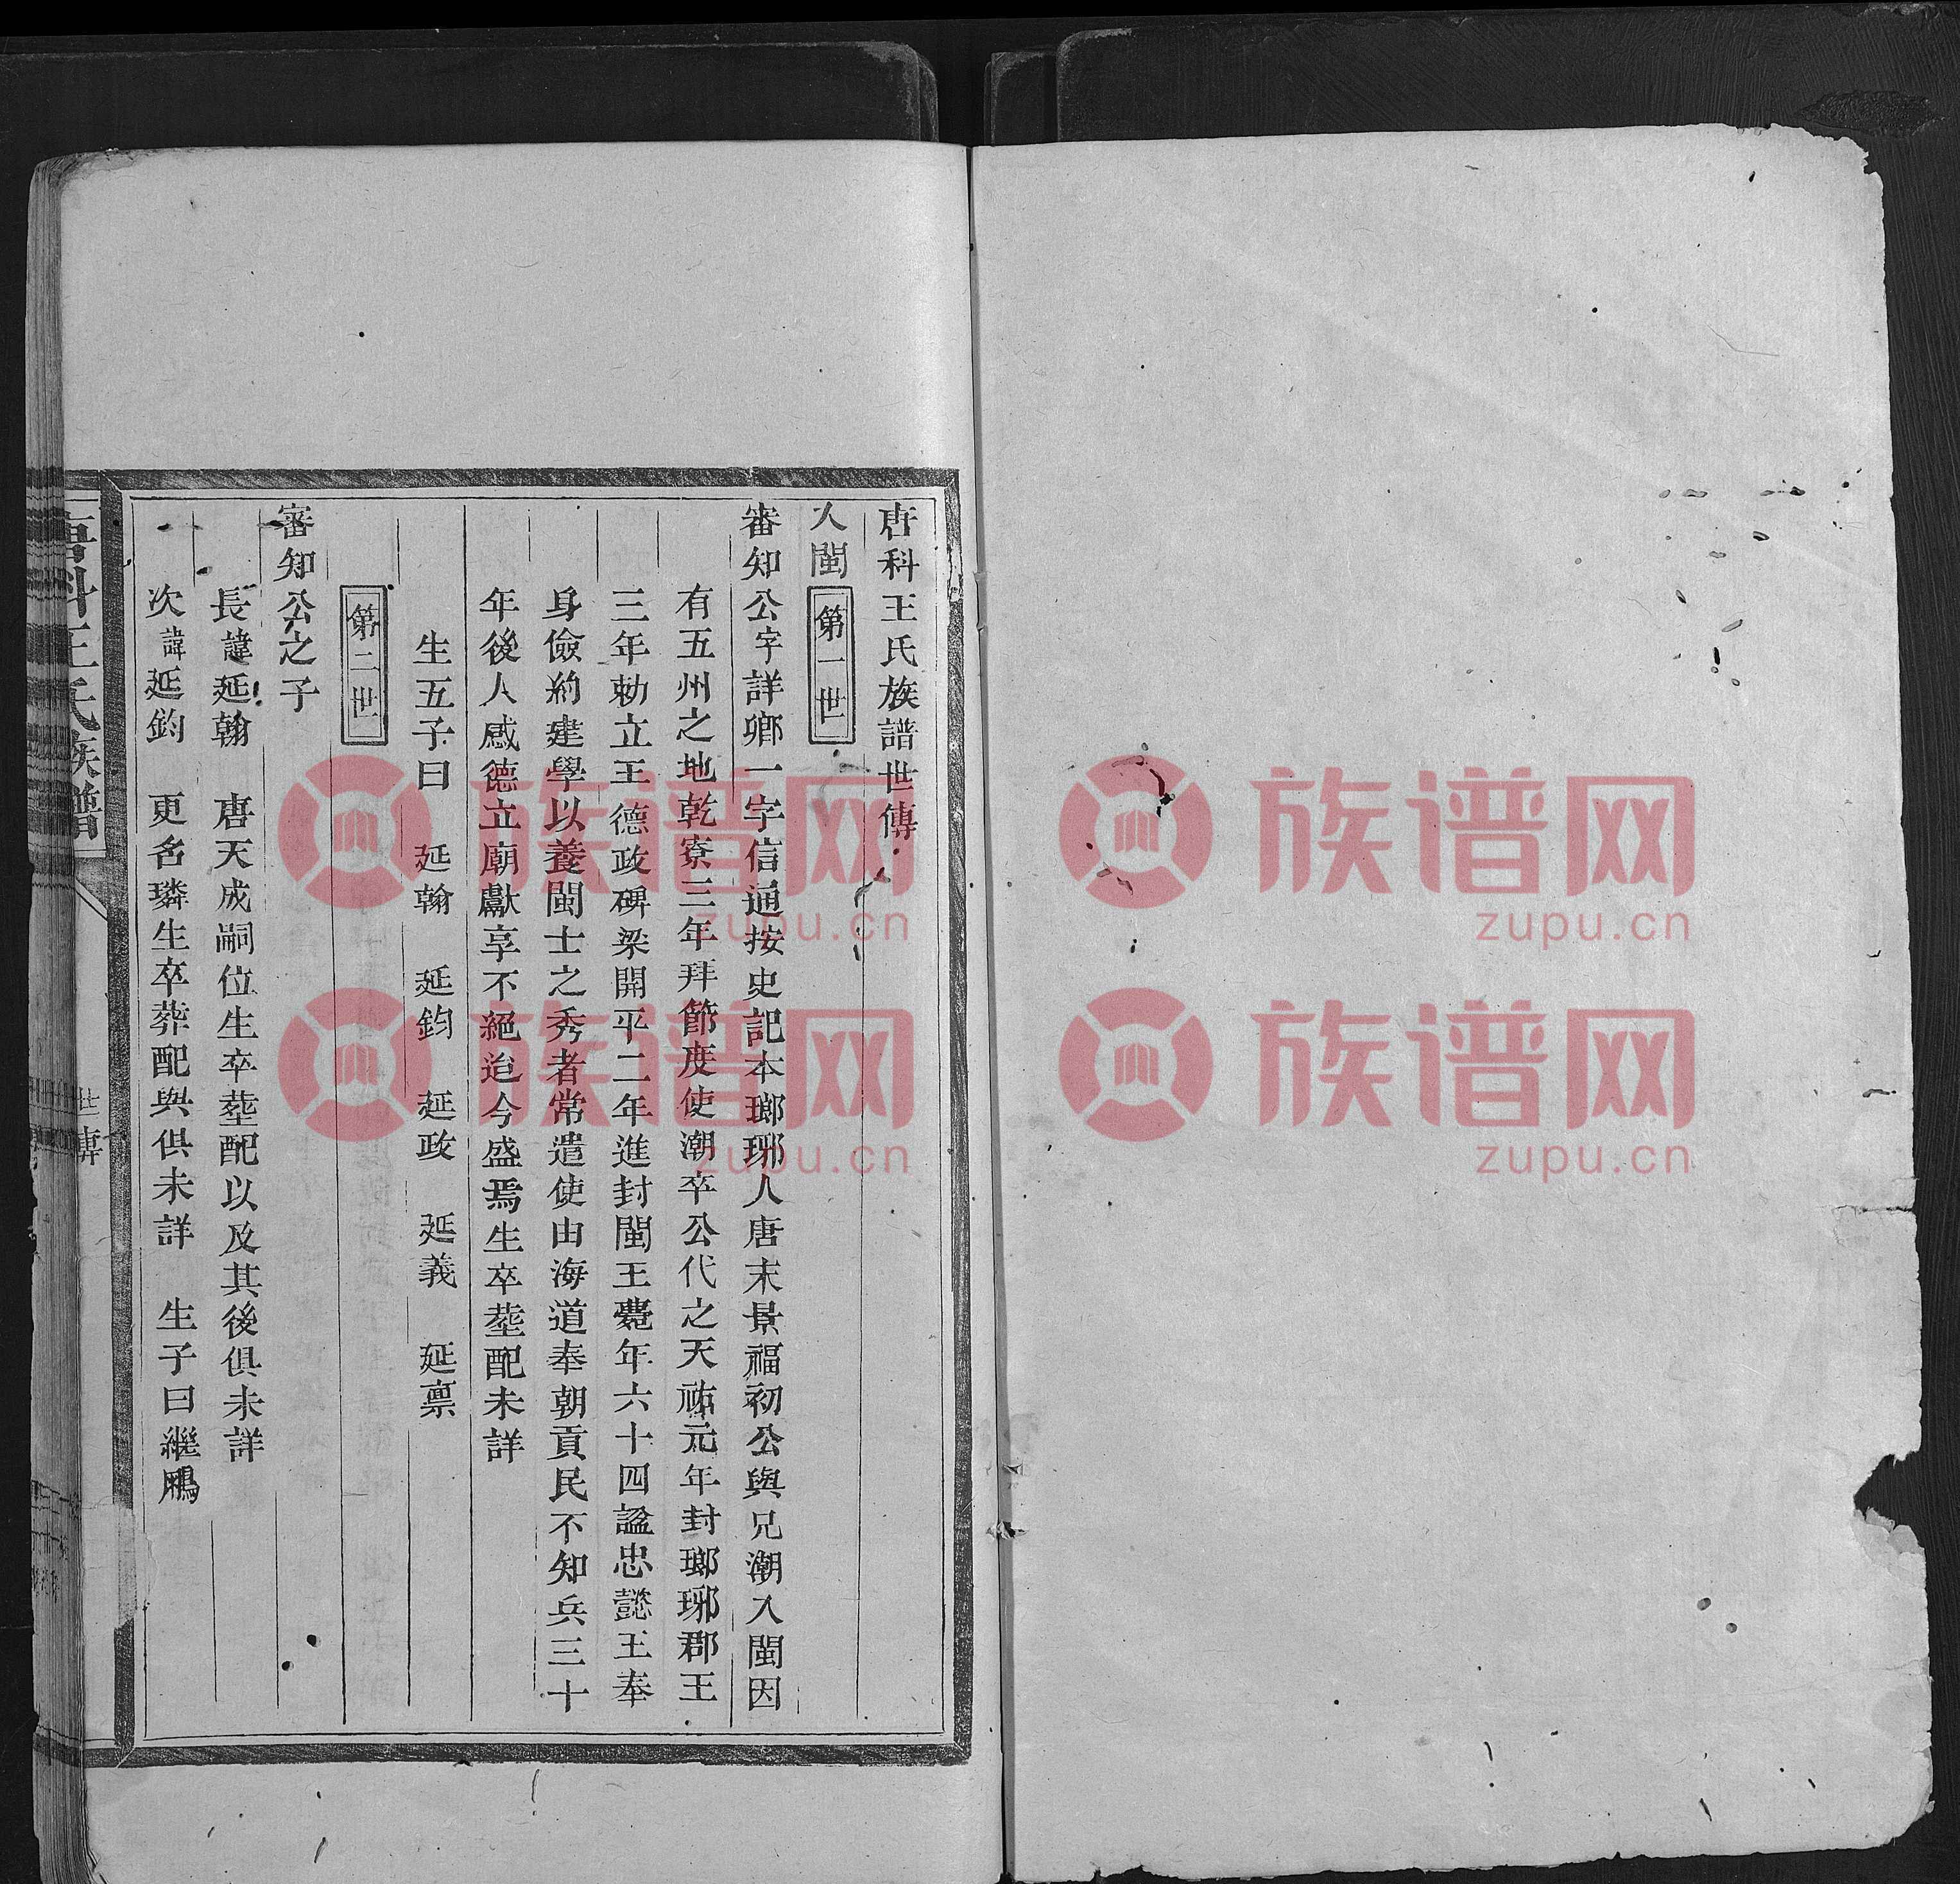 唐科王氏族譜世傳
入閩 第一世
審知公字詳鄉一字信通按史記本瑯琊人唐末景福初公與兄潮入閩因
有五州之地乾寧三年拜節度使潮卒公代之天祐元年封瑯琊郡王
三年勅立王德政碑梁開平二年進封閩王薨年六十四諡忠懿王奉
身儉約建學以養閩士之秀者常遣使由海道奉朝貢民不知兵三十
年後人感德立廟獻享不絕迨今盛焉生卒塟配未詳
生五子曰 延翰 延鈞 延政 延義 延禀
第二世
審知公之子
長諱延翰 唐天成嗣位生卒塟配以及其後俱未詳
次諱延鈞 更名璘生卒葬配與俱未詳 生子曰繼鵬
唐科王氏族譜
世傳
族谱网
zupu.cn
族谱网
zupu.cn
族谱网
zupu.cn
族谱网
zupu.cn